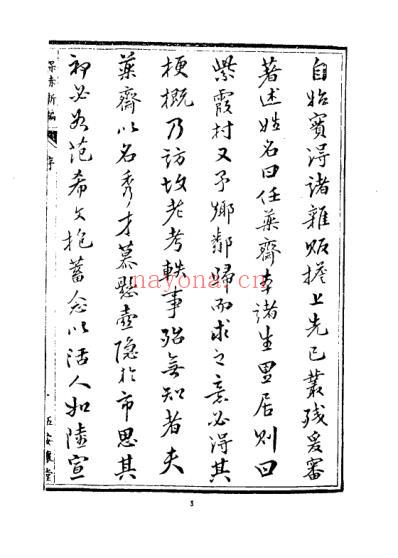 自始賓得諸雜販擔上先已叢殘爰審
著述姓名曰任藥齋本諸生里居則曰
紫霞村又予鄉鄰歸而求之意必得其
梗概乃訪故老考軼事殆無知者夫
藥齋以名秀才慕懸壺隱於市思其
初必若范希文抱蓄念以活人如陸宣
保赤新編 序
堂
3
nayona.cn